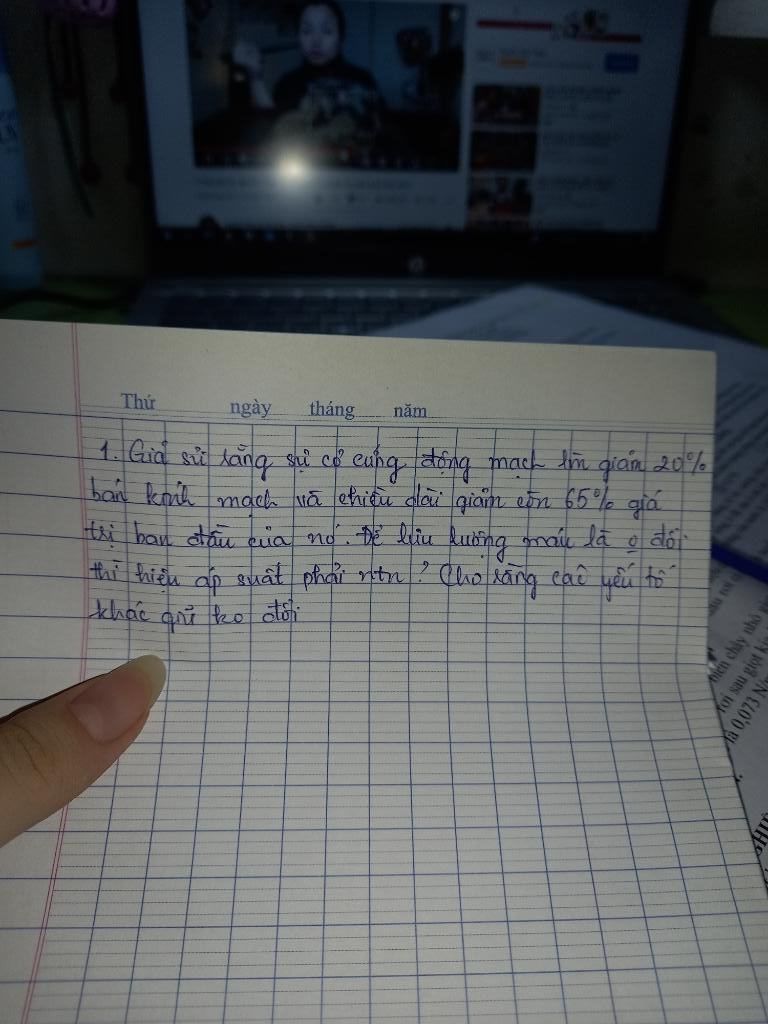 Thứ ngày tháng năm
1. Giả sử rằng sự cơ cứng động mạch làm giảm 20%
bán kính mạch và chiều dài giảm còn 65% giá
trị ban đầu của nó. Để lưu lượng máu là o đổi
thì hiệu áp suất phải ntn? Cho rằng các yếu tố
khác giữ ko đổi
là 0,073 N/